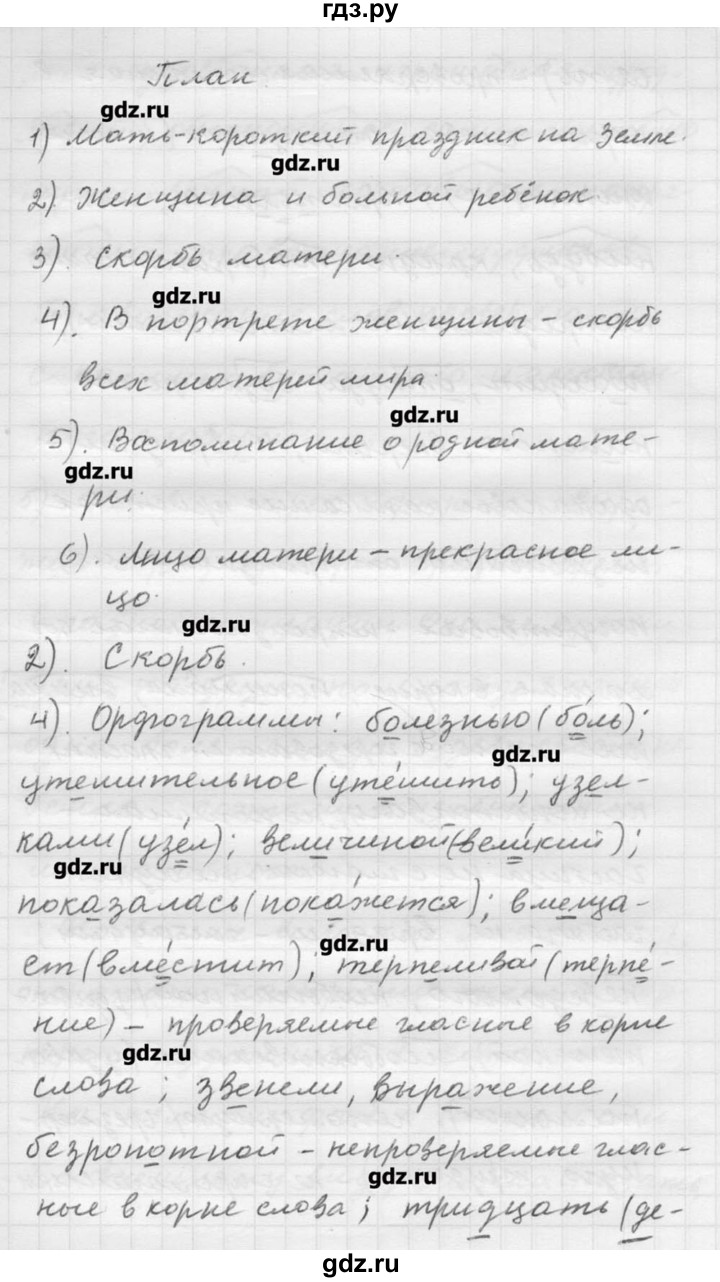 гдз.ру
План
gdz.ru
1) Мать-короткий праздник на земле.
gdz.ru
2). Женщина и больной ребёнок.
3). Скорбь матери.
gdz.ru
4). В портрете женщины – скорбь
всех матерей мира.
gdz.ru
5). Воспоминание о родной мате-
gdz.ru
ри.
6). Лицо матери – прекрасное ли-
цо.
gdz.ru
2). Скорбь.
4). Орфограммы: болезнью (бо́ль);
gdz.ru
утешительное (уте́шить); узел-
ками (узе́л); величиной (вели́кий);
gdz.ru
показалась (пока́жется); вмеща-
gdz.ru
ет (вме́стит); терпеливой (терпе́-
ние) – проверяемые гласные в корне
gdz.ru
слова; звенели, выражение,
безропотной – непроверяемые глас-
gdz.ru
ные в корне слова; тридцать (де-
gdz.ru